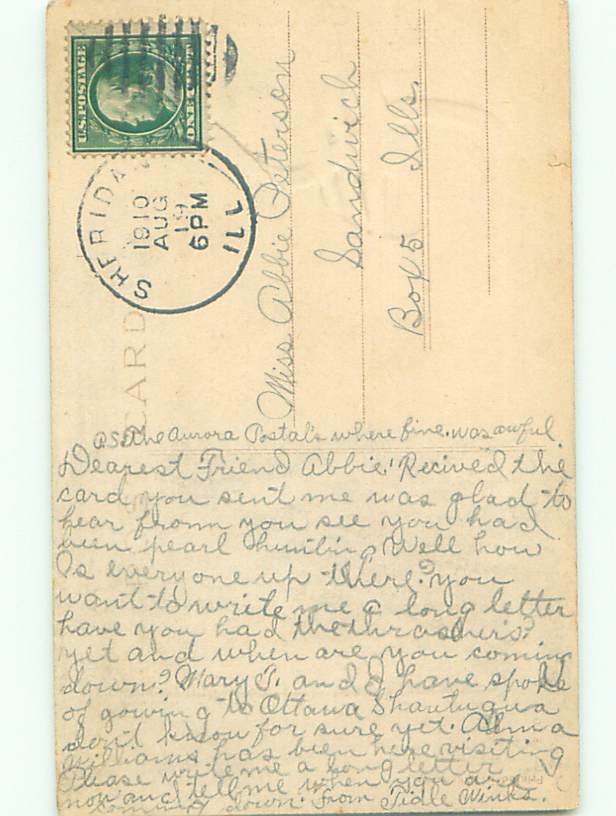 U.S. POSTAGE
ONE CENT
SHERIDAN
ILL
1910
AUG
19
6 PM
CARD
Miss. Abbie Peterson
Sandwich
Box 5 Ills.
P.S. The Aurora Postal's where fine. was awful
Dearest Friend Abbie! Recived the
card you sent me was glad to
hear fromm you see you had
been pearl hunting Well how
Is everyone up there? you
want to write me a long letter
have you had the thrashers?
yet and when are you coming
down? Mary T. and I have spoke
of gowing to Ottawa Shautuqua
don't know for sure yet. Alma
Williams has been here visiting
Please write me a long letter
now and tell me when you are
coming down. From Tidle Winks.